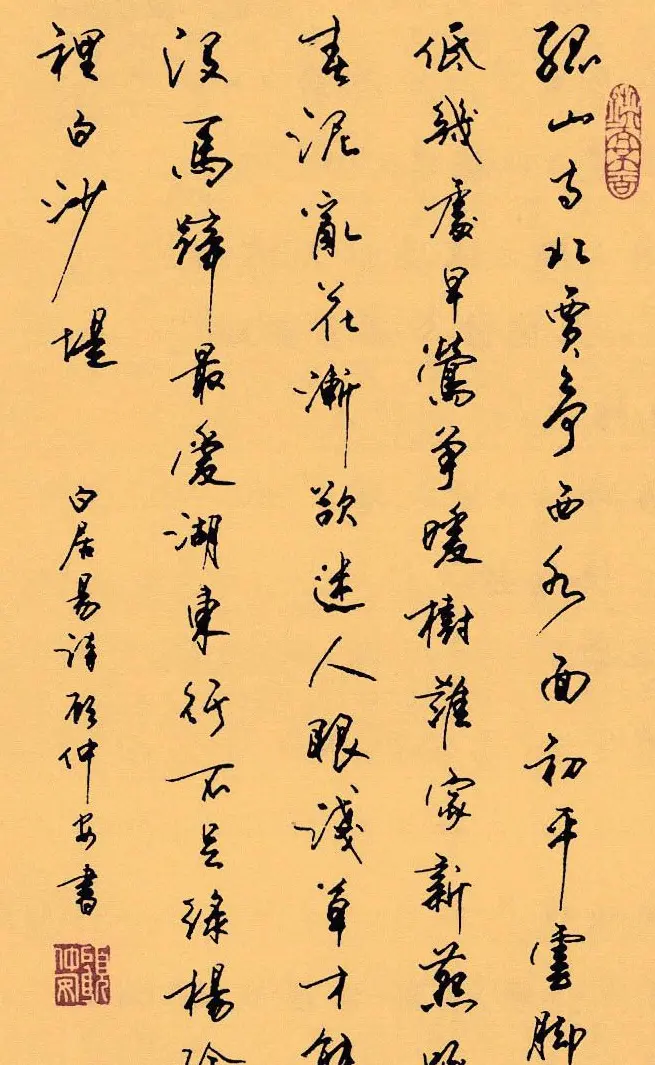 孤山寺北賈亭西水面初平雲脚
低幾處早鶯爭暖樹誰家新燕
春泥亂花漸欲迷人眼淺草才能
沒馬蹄最愛湖東行不足綠楊陰
裡白沙堤
白居易詩顧仲安書
顧仲安